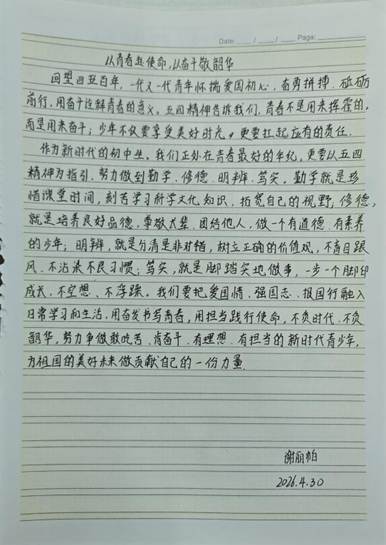 Date: / / Page:
以青春赴使命,以奋斗敬韶华
回望四五百年,一代又一代青年怀揣爱国初心,奋勇拼搏,砥砺
前行,用奋斗诠释青春的意义。五四精神告诉我们,青春不是用来挥霍的,
而是用来奋斗;少年不仅要享受美好时光,更要扛起应有的责任。
作为新时代的初中生,我们正处在青春最好的年纪,更要以五四
精神为指引,努力做到勤学、修德、明辨、笃实。勤学就是珍
惜课堂时间,刻苦学习科学文化知识,拓宽自己的视野,修德,
就是培养良好品德,尊敬大辈,团结他人,做一个有道德、有素养
的少年;明辨,就是分清是非对错,树立正确的价值观,不盲目跟
风,不沾染不良习惯;笃实,就是脚踏实地做事,一步一个脚印
成长,不空想、不浮躁。我们要把爱国情、强国志、报国行融入
日常学习和生活,用奋发书写青春,用担当践行使命,不负时代,不负
韶华,努力争做敢吃苦、肯奋斗、有理想、有担当的新时代青少年,
为祖国的美好未来做贡献自己的一份力量。
谢丽帕
2026.4.30